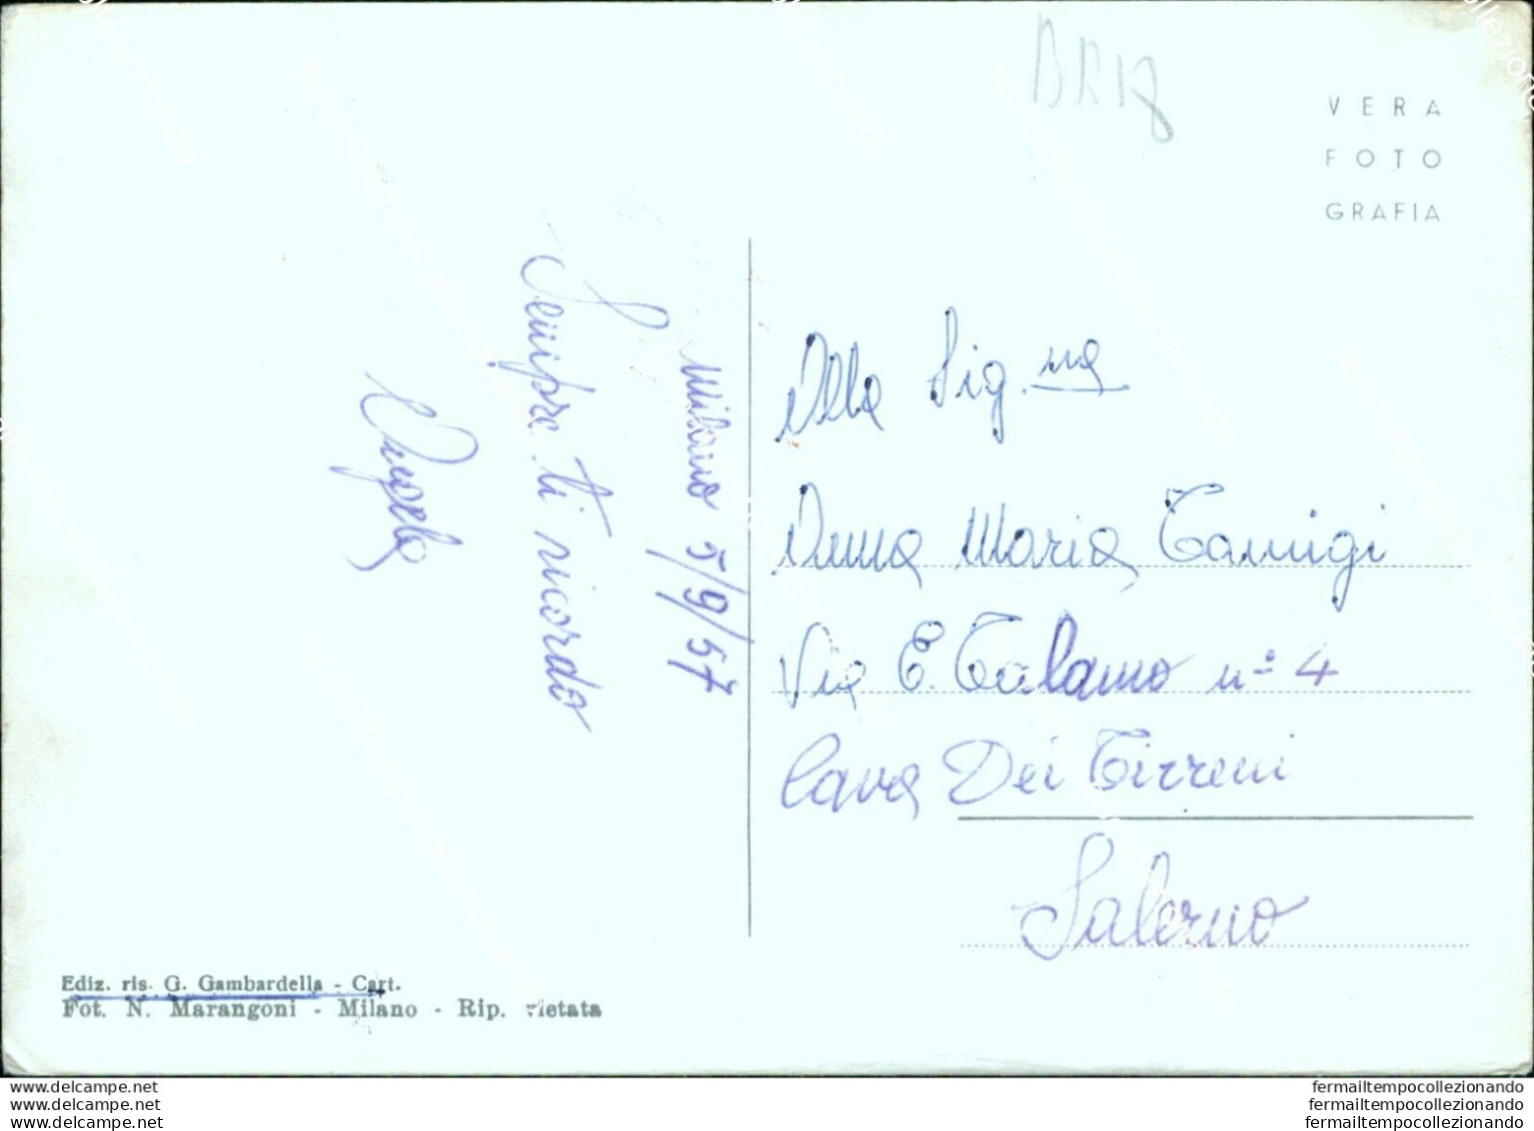 BR18
VERA
FOTO
GRAFIA
Milano 5/9/57
Sempre ti ricordo
Angela
Alla Sig.na
Anna Maria Tamigi
Via E. Talamo n° 4
Cava Dei Tirreni
Salerno
Ediz. ris. G. Gambardella - Cart.
Fot. N. Marangoni - Milano - Rip. vietata
www.delcampe.net
www.delcampe.net
www.delcampe.net
fermailtempocollezionando
fermailtempocollezionando
fermailtempocollezionando